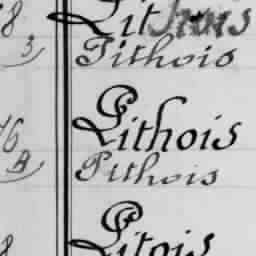 Lithois
3 Pithois
Lithois
B Pithois
Litois